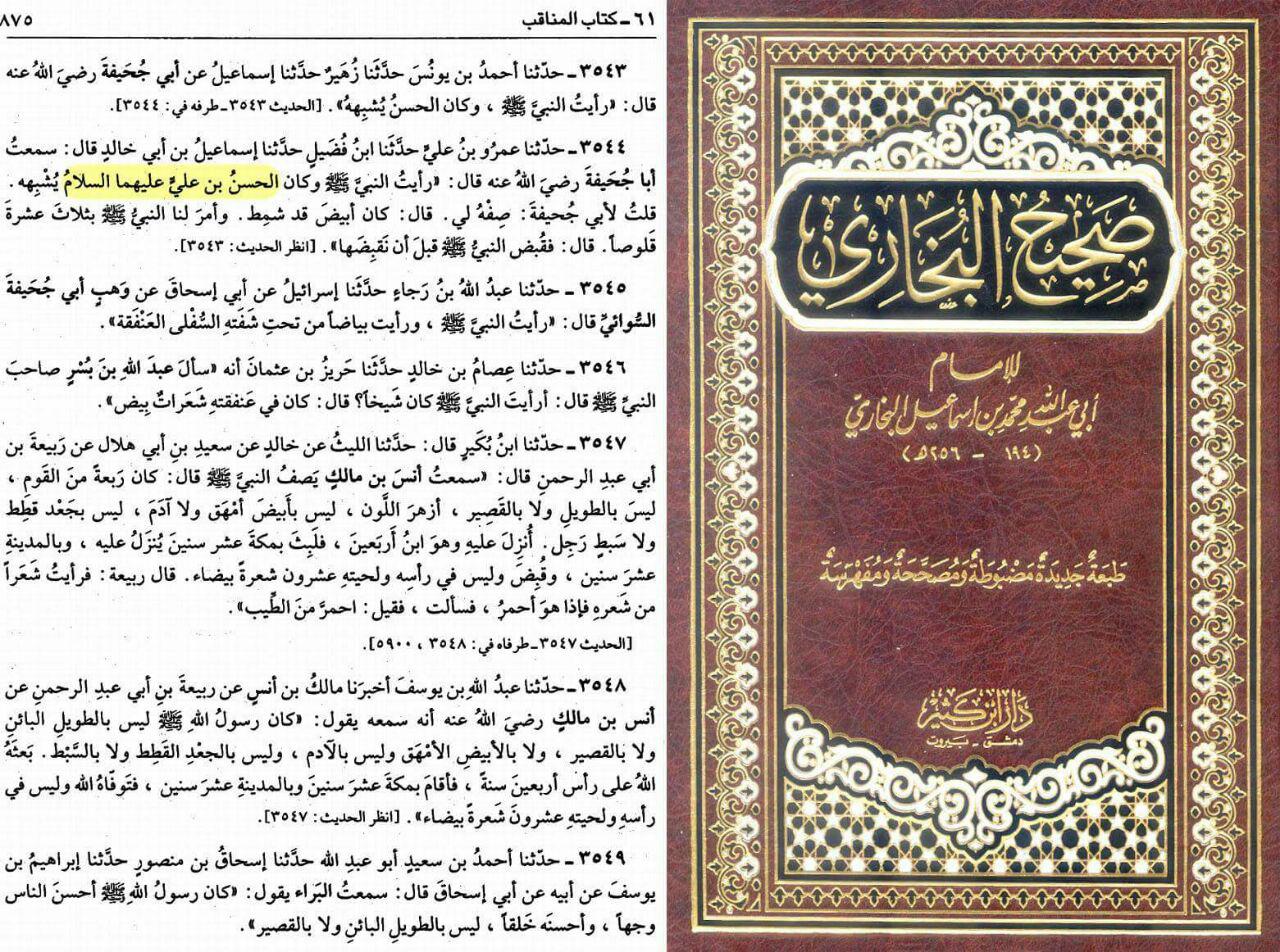 ٦١ ـ كتاب المناقب
٨٧٥
٣٥٤٣ ـ حدّثنا أحمدُ بن يونُسَ حدَّثَنا زُهَيرٌ حدَّثنا إسماعيلُ عن أبي جُحَيفةَ رضيَ اللهُ عنه
قال: «رأيتُ النبيَّ ﷺ ، وكان الحسنُ يُشبِههُ». [الحديث ٣٥٤٣ ـ طرفه في: ٣٥٤٤].
٣٥٤٤ ـ حدّثنا عمرُو بنُ عليٍّ حدَّثَنا ابنُ فُضَيلٍ حدَّثنا إسماعيلُ بن أبي خالدٍ قال: سمعتُ
أبا جُحَيفةَ رضيَ اللهُ عنه قال: «رأيتُ النبيَّ ﷺ وكان الحسنُ بن عليٍّ عليهما السلامُ يُشْبِهه .
قلتُ لأبي جُحَيفةَ: صِفْهُ لي. قال: كان أبيضَ قد شمِط. وأمرَ لنا النبيُّ ﷺ بثلاثَ عشرةَ
قَلوصاً. قال: فقُبض النبيُّ ﷺ قبلَ أن نَقبِضَها». [انظر الحديث: ٣٥٤٣].
٣٥٤٥ ـ حدّثنا عبدُ اللهُ بنُ رَجاءٍ حدَّثَنا إسرائيلُ عن أبي إسحاقَ عن وَهبٍ أبي جُحَيفةَ
السُّوائيِّ قال: «رأيتُ النبيَّ ﷺ ، ورأيت بياضاً من تحتِ شَفَتهِ السُّفْلى العَنْفَقة».
٣٥٤٦ ـ حدّثنا عِصامُ بن خالدٍ حدَّثَنا حَريزُ بن عثمانَ أنه «سألَ عبدَ اللهِ بنَ بُسْرٍ صاحبَ
النبيِّ ﷺ قال: أرأيتَ النبيَّ ﷺ كان شَيخاً؟ قال: كان في عَنفقتهِ شَعَراتٌ بِيض».
٣٥٤٧ ـ حدّثنا ابنُ بُكَيرٍ قال: حدَّثَنا الليثُ عن خالدٍ عن سعيدِ بنِ أبي هلال عن رَبيعةَ بن
أبي عبدِ الرحمنِ قال: «سمعتُ أنسَ بن مالكٍ يَصفُ النبيَّ ﷺ قال: كان رَبعةً منَ القومِ ،
ليسَ بالطويلِ ولا بالقَصيرِ ، أزهرَ اللَّون ، ليس بأَبيضَ أمْهَق ولا آدَمَ ، ليس بجَعْد قَطِط
ولا سَبطٍ رَجِل. أُنزِلَ عليهِ وهوَ ابنُ أربَعينَ ، فلَبِثَ بمكةَ عشر سنينَ يُنزَلُ عليه ، وبالمدينةِ
عشرَ سنين ، وقُبِضَ وليس في رأسِه ولحيتهِ عشرون شعرةً بيضاء. قال ربيعة: فرأيتُ شَعَراً
من شَعرهِ فإذا هوَ أحمرُ ، فسألت ، فقيل: احمرَّ منَ الطِّيب».
[الحديث ٣٥٤٧ ـ طرفاه في: ٣٥٤٨ ، ٥٩٠٠].
٣٥٤٨ ـ حدّثنا عبدُ اللهِ بن يوسفَ أخبرَنا مالكُ بن أنسٍ عن ربيعةَ بنِ أبي عبدِ الرحمنِ عن
أنس بن مالكٍ رضيَ اللهُ عنه أنه سمعه يقول: «كان رسولُ اللهِ ﷺ ليس بالطويلِ البائنِ
ولا بالقصير ، ولا بالأبيضِ الأمْهَقِ وليس بالآدم ، وليس بالجعْدِ القَطِط ولا بالسَّبْط. بَعثَهُ
اللهُ على رأس أربعينَ سنةً ، فأقامَ بمكةَ عَشرَ سنينَ وبالمدينةِ عشرَ سنين ، فتَوفّاهُ الله وليس في
رأسهِ ولحيتهِ عشرونَ شَعرةً بيضاء». [انظر الحديث: ٣٥٤٧].
٣٥٤٩ ـ حدّثنا أحمدُ بن سعيدٍ أبو عبدِ الله حدَّثنا إسحاقُ بن منصورٍ حدَّثنا إبراهيمُ بن
يوسفَ عن أبيه عن أبي إسحاقَ قال: سمعتُ البَراء يقول: «كان رسولُ اللهِ ﷺ أحسنَ الناس
وجهاً ، وأحسنَه خَلقاً ، ليس بالطويلِ البائنِ ولا بالقصير».
صَحِيحُ البُخَارِي
للإمام
أبي عبد الله محمد بن إسماعيل البخاري
(١٩٤ - ٢٥٦هـ)
طبعَةٌ جَديدَةٌ مَضبُوطَةٌ وَمُصَحَّحَةٌ وَمُفَهْرَسَةٌ
دَارُ ابْن كَثِير
دمشق - بيروت